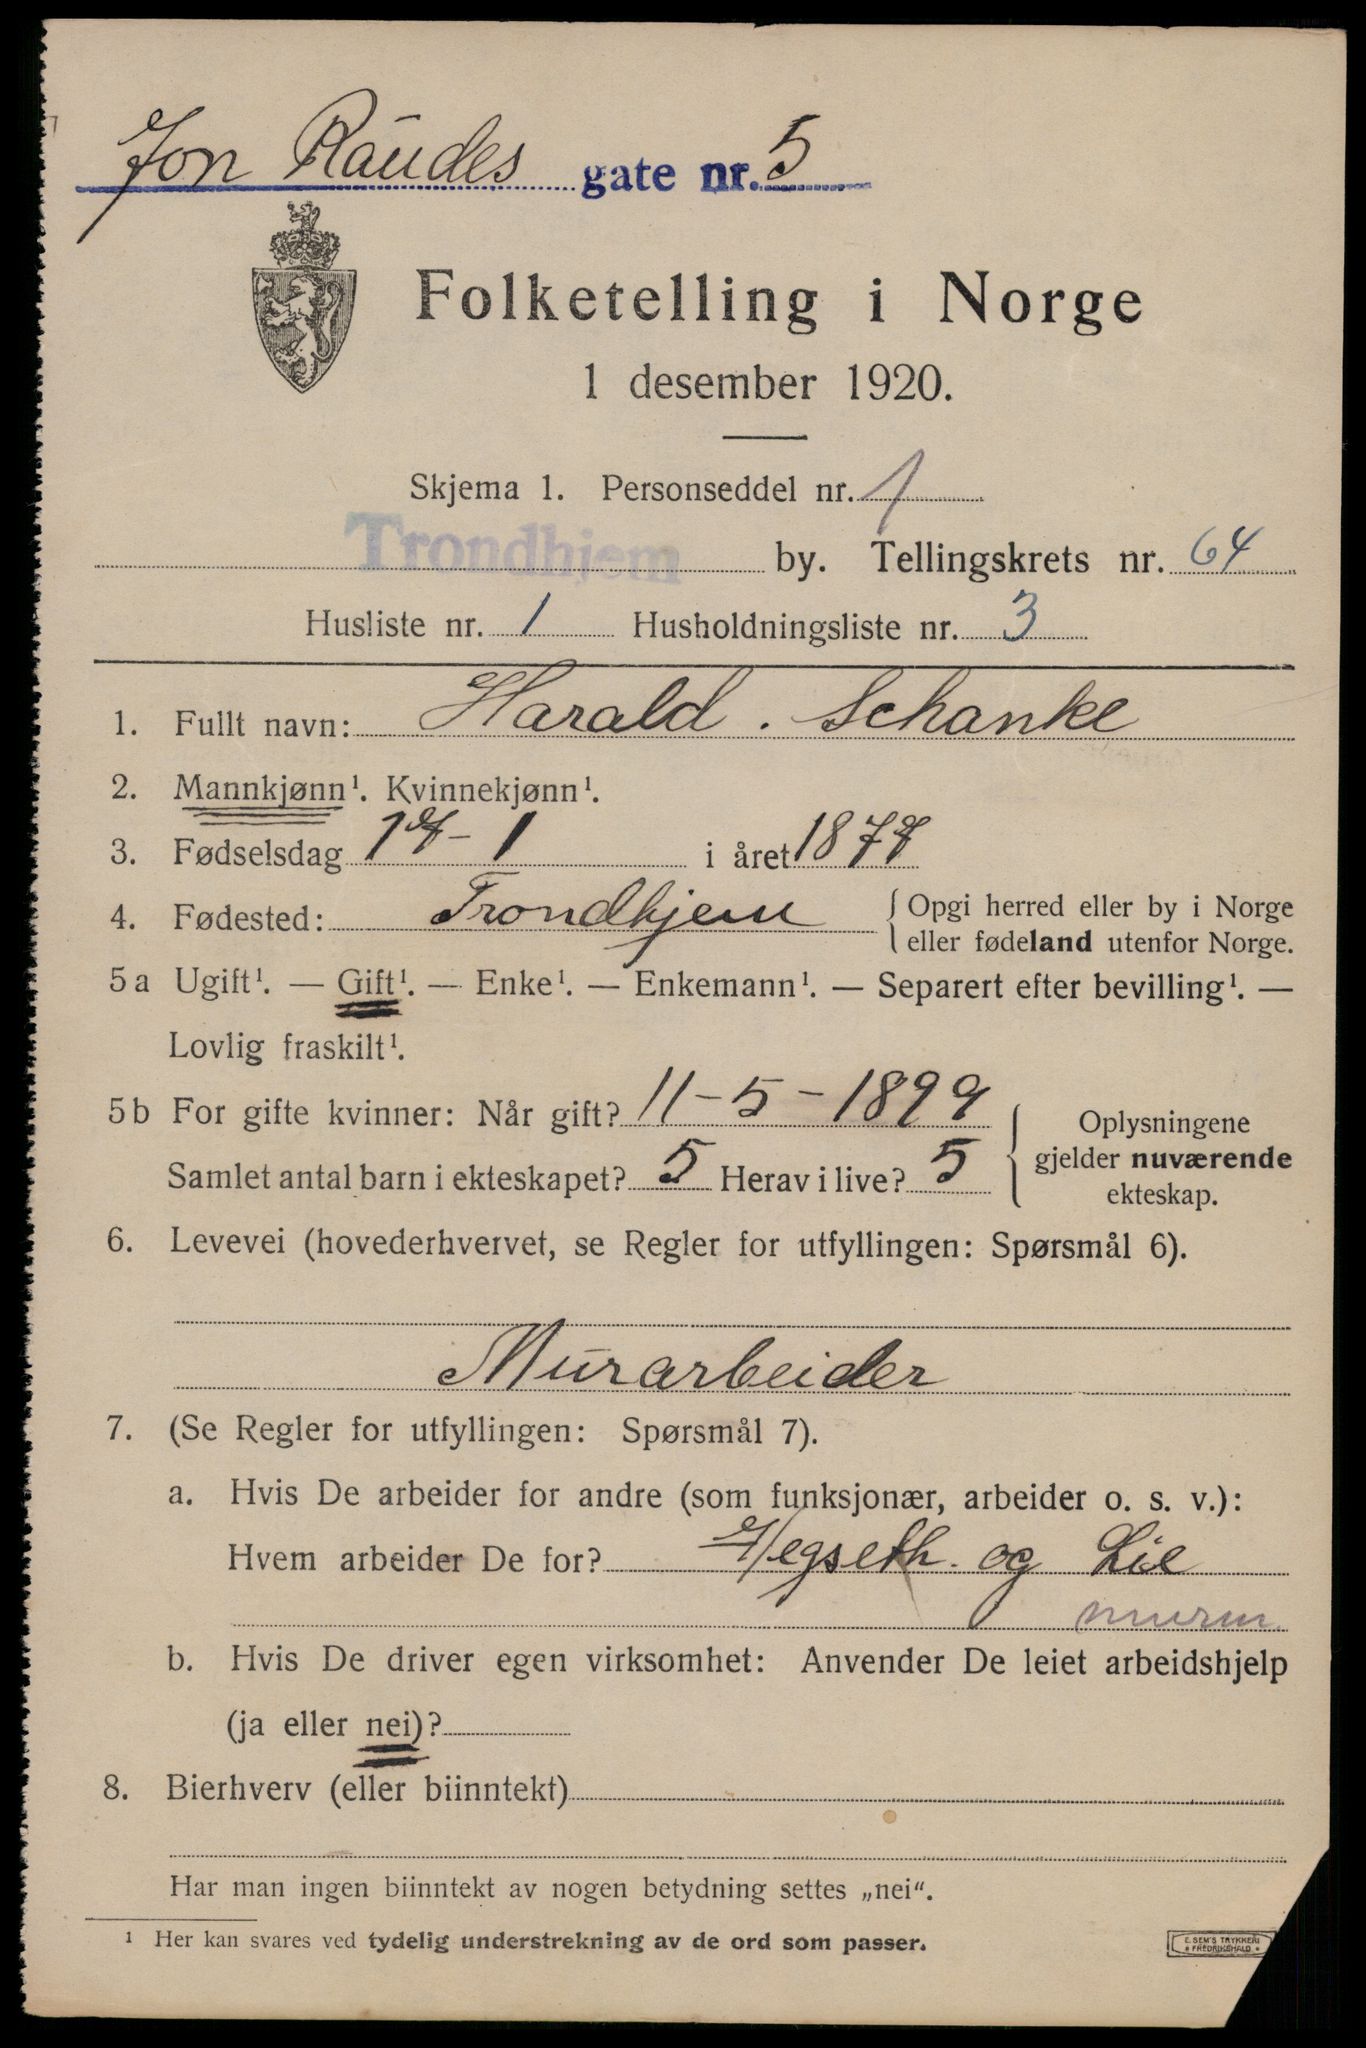 Jon Raudes gate nr. 5
Folketelling i Norge
1 desember 1920.
Skjema 1. Personseddel nr. 1
Trondhjem by. Tellingskrets nr. 64
Husliste nr. 1 Husholdningsliste nr. 3
1. Fullt navn: Harald. Schanke
2. Mannkjønn¹. Kvinnekjønn¹.
3. Fødselsdag 18-1 i året 1878
4. Fødested: Trondhjem { Opgi herred eller by i Norge
eller fødeland utenfor Norge.
5 a Ugift¹. — Gift¹. — Enke¹. — Enkemann¹. — Separert efter bevilling¹. —
Lovlig fraskilt¹.
5 b For gifte kvinner: Når gift? 11-5-1899 { Oplysningene
gjelder nuværende
Samlet antal barn i ekteskapet? 5 Herav i live? 5
ekteskap.
6. Levevei (hovederhvervet, se Regler for utfyllingen: Spørsmål 6).
Murarbeider
7. (Se Regler for utfyllingen: Spørsmål 7).
a. Hvis De arbeider for andre (som funksjonær, arbeider o. s. v.):
Hvem arbeider De for? Hegseth. og Lie
murm.
b. Hvis De driver egen virksomhet: Anvender De leiet arbeidshjelp
(ja eller nei)?
8. Bierhverv (eller biinntekt)
Har man ingen biinntekt av nogen betydning settes „nei“.
¹ Her kan svares ved tydelig understrekning av de ord som passer.
E. SEM'S TRYKKERI
FREDRIKSHALD